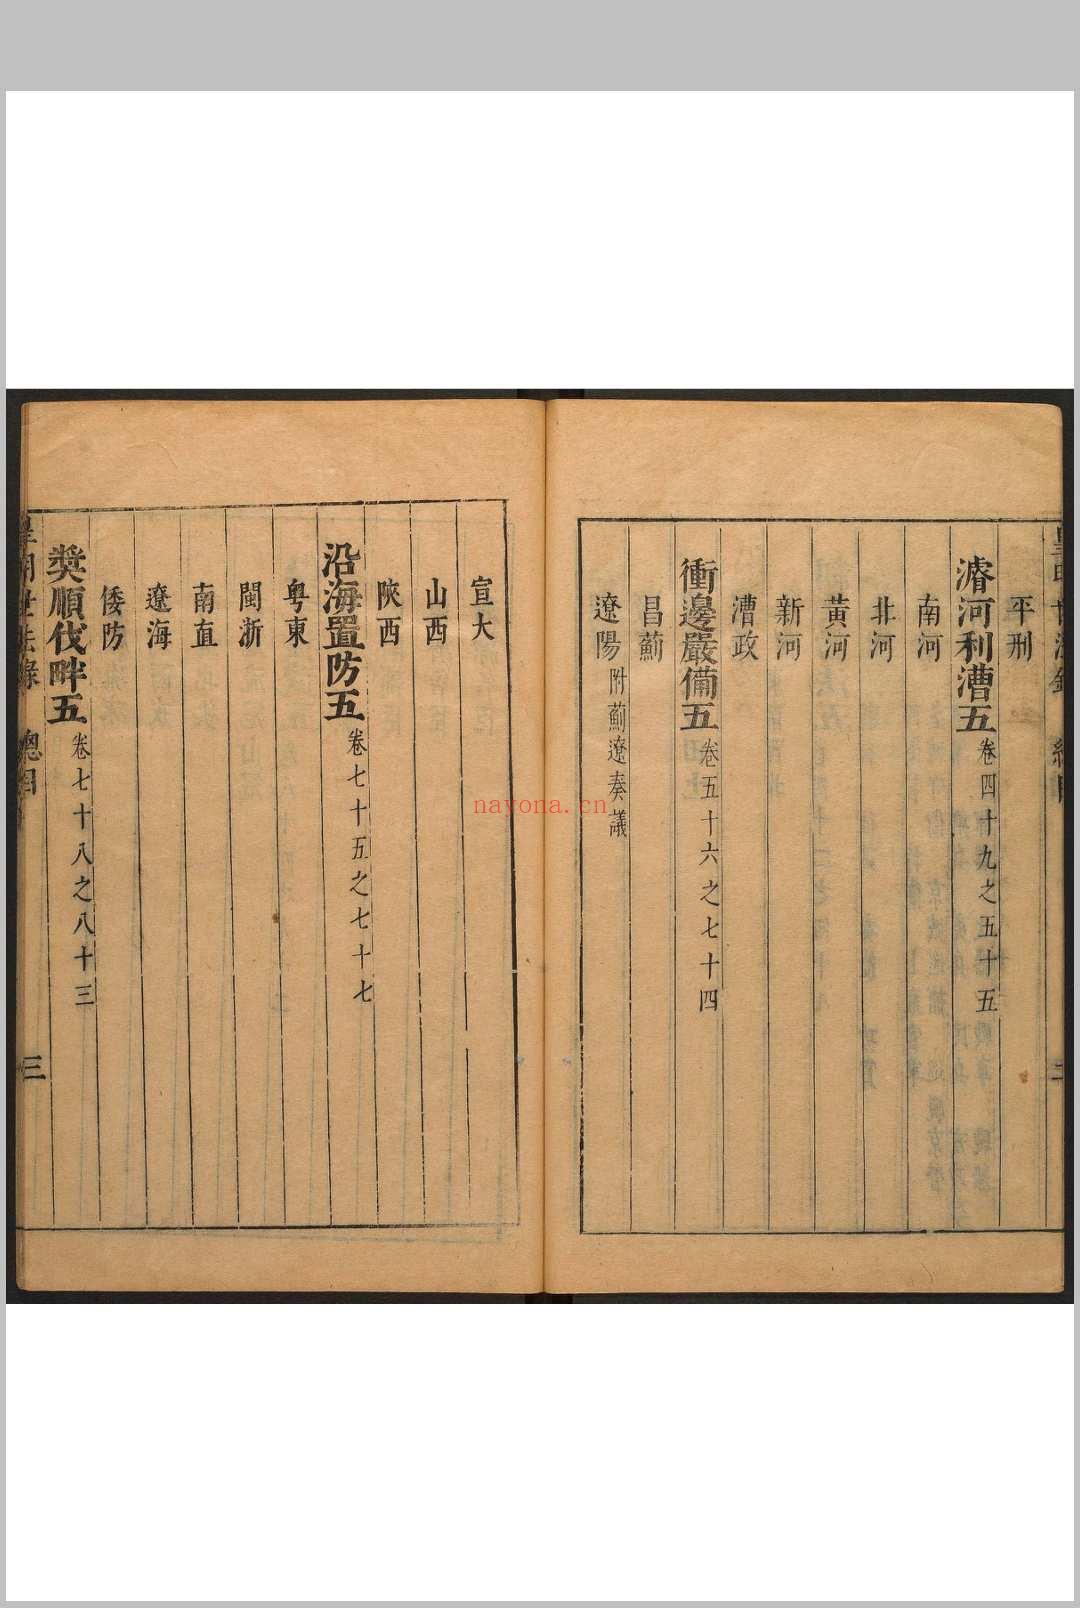 平刑
濬河利漕五 卷四十九之五十五
南河
北河
黃河
新河
漕政
衝邊嚴備五 卷五十六之七十四
昌薊
遼陽 附薊遼奏議
宣大
山西
陝西
沿海置防五 卷七十五之七十七
粤東
閩浙
南直
遼海
倭防
奬順伐畔五 卷七十八之八十三
皇明世法錄 總目 三
nayona.cn